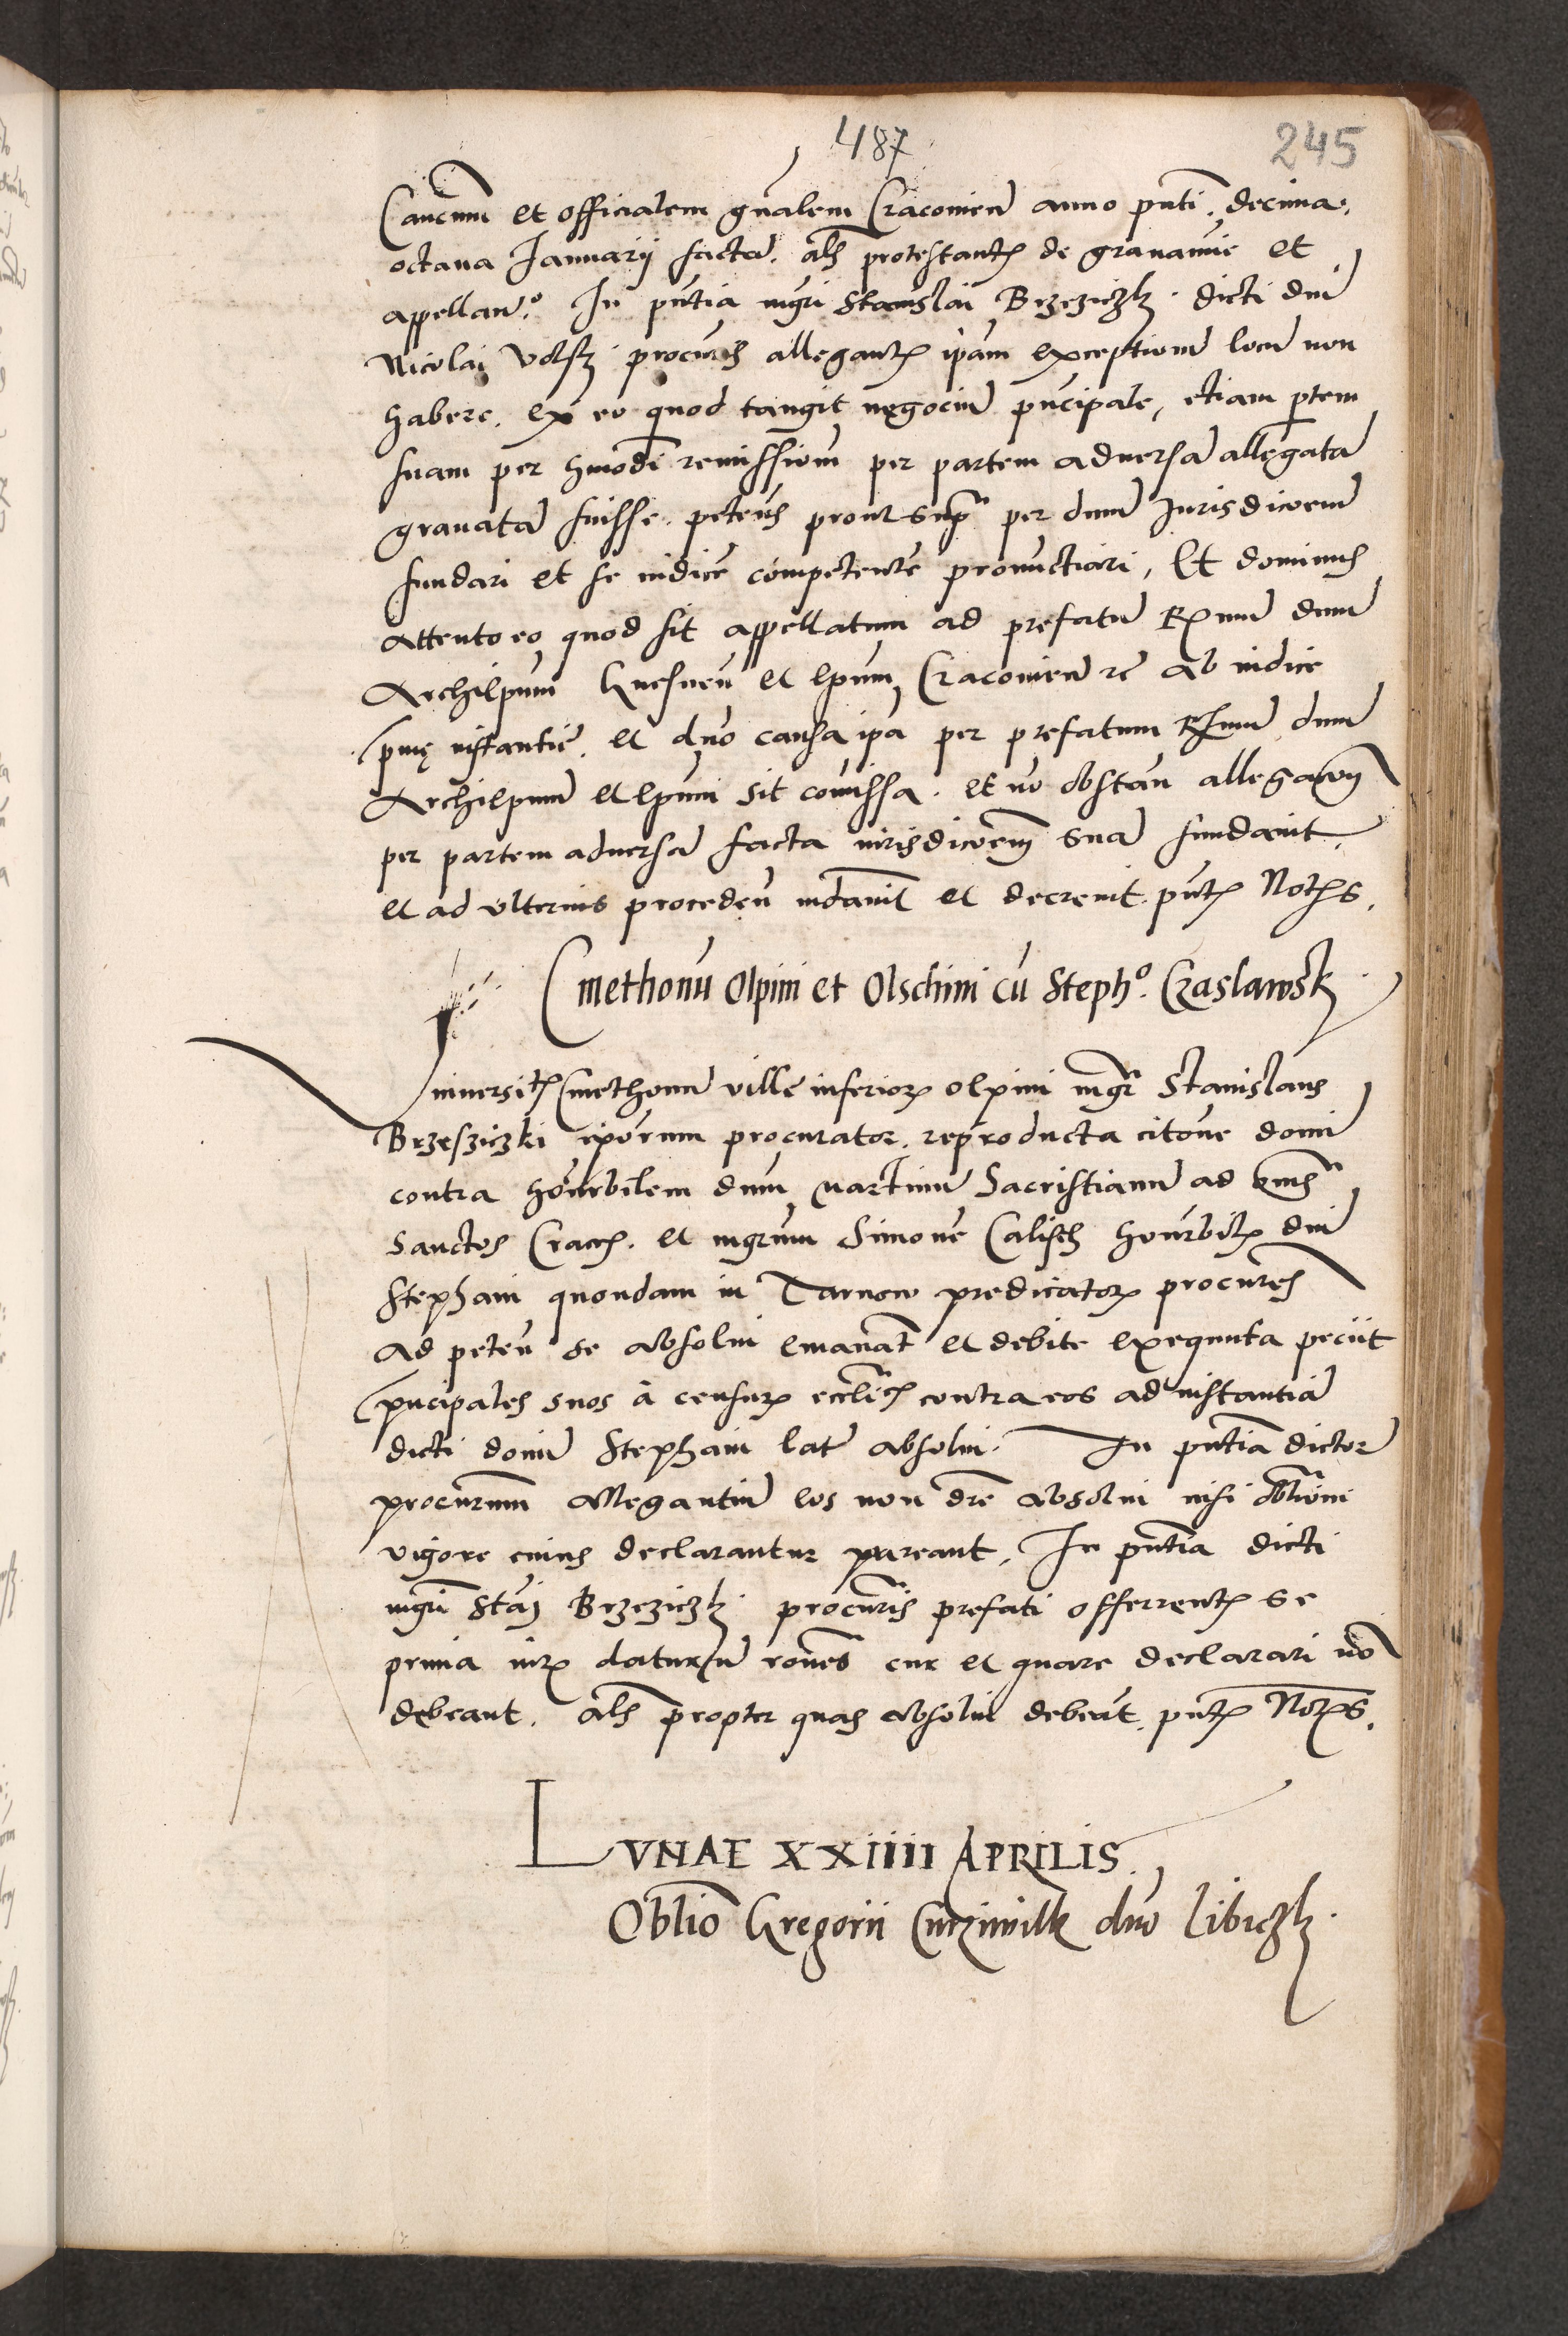 487
245
Cancrum et officialem gnalem Cracovien anno pnti. decima
octava Januarij facta. als protestantis de gravamie et
appellan.º In pntia mgri Stanislai Brzeziczky dicti dni
Nicolai Volsky procuris allegantis ipam exceptionem locum non
habere. ex eo quod tangit negocium pncipale, etiam ptem
suam per hmodi remissionem per partem adversa allegata
gravata fuisse. petens prout supra per dnum Jurisdicoem
fundari et se iudice competente pronunctiari, Et dominus
attento eo quod sit appellatum ad prefatum Rmum dnum
Archiepum Gnesnen et Epum Cracovien re ab iudice
pme instantie. et dno causa ipa per prefatum Rmum dnum
Archiepum et Epum sit comissa. et no obstan allegatoni
per partem adversa facta iurisdicoem sua fundavit.
et ad ulterius proceden mdavit et decrevit. pntis Notis.
Cmethonu Olpini et Olschini cu Stephº. Czaslawsk
Universitis Cmethonum ville inferioris Olpini mgr Stanislaus
Brzesziczki ipsorum procurator. reproducta citone domi
contra honorbilem dnum Martinum Sacristianum ad omes
Sanctos Cracis. et mgrum Simone Calisch honorbilis dni
Stephani quondam in Tarnow predicatoris procures
ad peten se absolvi emanat et debite exequuta peciit
pncipales suos a censuris ecclicis contra eos ad instantia
dicti domi Stephani lat absolvi. In pntia dictor
procurum allegantium eos non dre absolvi nisi obligationi
vigore cuius declarantur pareant, In pntia dicti
mgri Stai Brzeziczky procuris prefati offerrentis se
prima iuris daturum rones cur et quare declarari no
debeant. als propter quas absolvi debeat. pntis Notis.
LVNAE XXIIII APRILIS
Oblio Gregorii Curzimilk dno Libiczky.